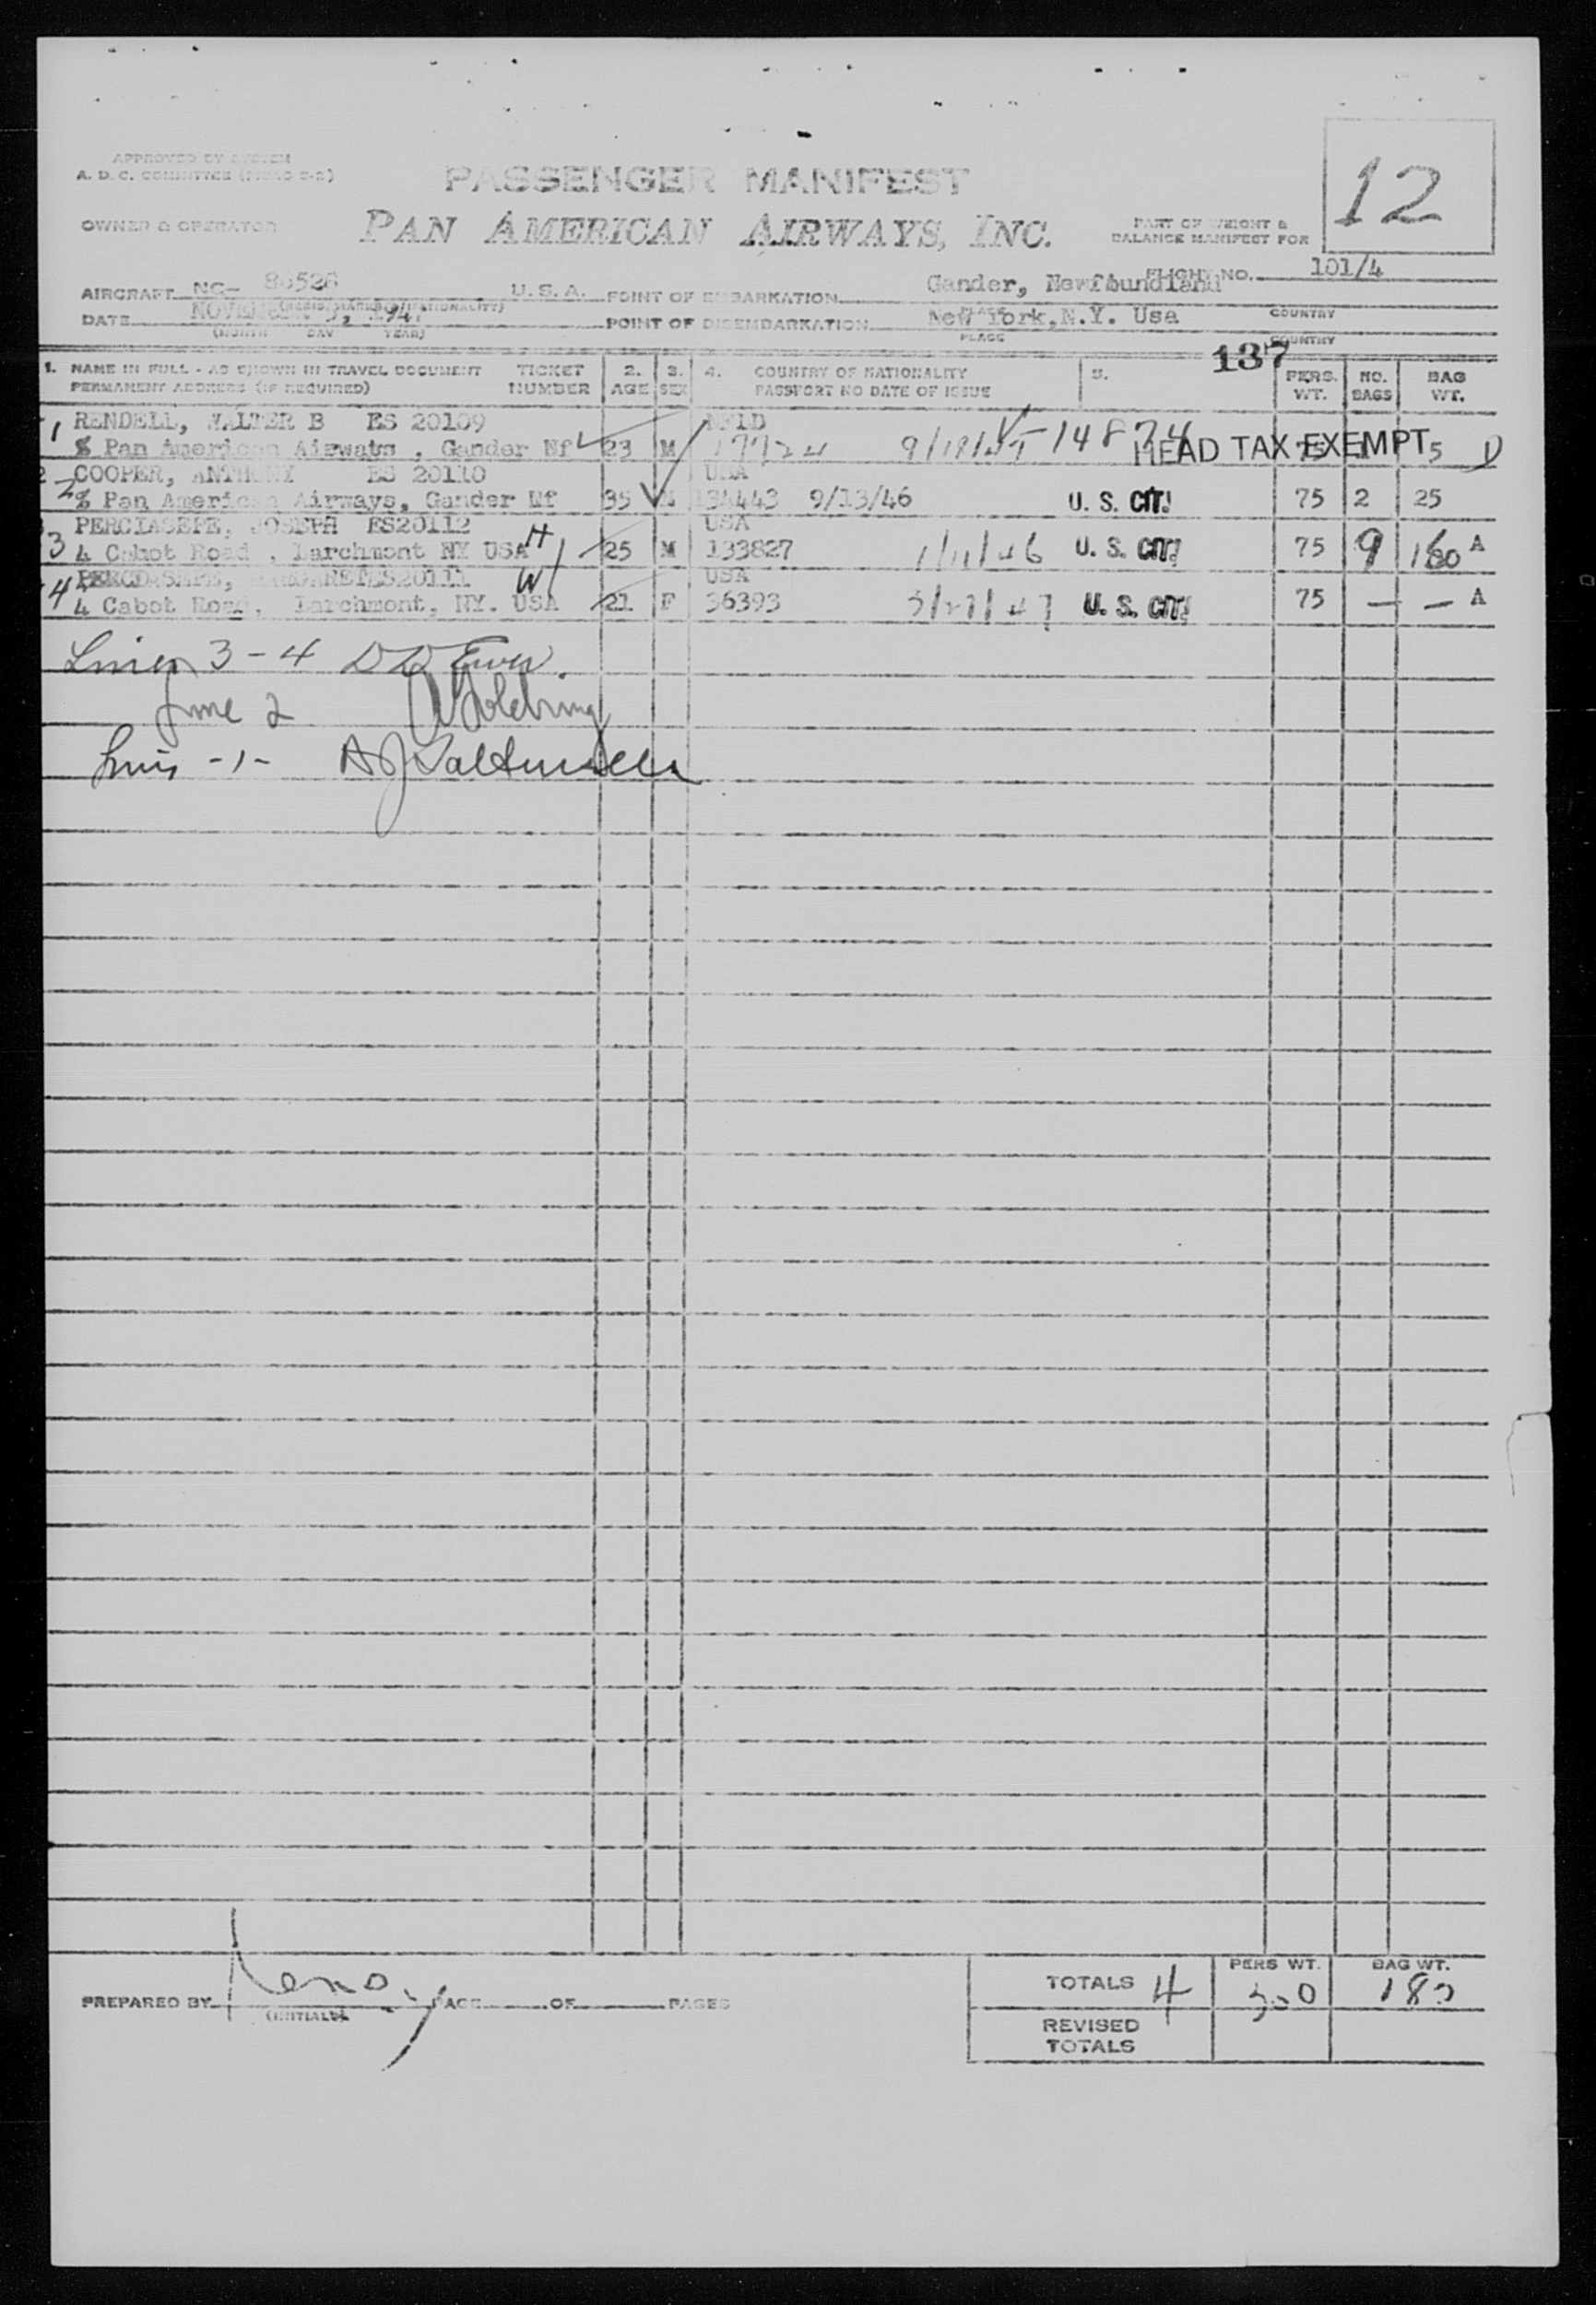 APPROVED BY SYSTEM
A. D. C. COMMITTEE
12
PASSENGER MANIFEST
OWNER & OPERATOR
PAN AMERICAN AIRWAYS, INC.
PART OF WEIGHT &
BALANCE MANIFEST FOR
FLIGHT NO. 101/4
AIRCRAFT NC- U. S. A. POINT OF EMBARKATION Gander, Newfoundland
DATE NOVEMBER POINT OF DISEMBARKATION New York, N.Y. Usa COUNTRY
(MONTH DAY YEAR) PLACE COUNTRY
137
1. NAME IN FULL - AS SHOWN IN TRAVEL DOCUMENT TICKET 2. 3. 4. COUNTRY OF NATIONALITY 5. PERS. NO. BAG
PERMANENT ADDRESS (IF REQUIRED) NUMBER AGE SEX PASSPORT NO DATE OF ISSUE WT. BAGS WT.
RENDELL, WALTER B ES 20109 NFLD
1 % Pan American Airwats , Gander Nf 23 M 17724 V-14874 HEAD TAX EXEMPT D
2 COOPER, ANTHONY ES 20110 USA
2 % Pan American Airways, Gander Nf 35 M 134443 9/13/46 U. S. CIT. 75 2 25
PERCIASEPE, JOSEPH ES20112 USA
3 4 Cabot Road , Larchmont NY USA H 25 M 133827 1/11/46 U. S. CIT. 75 9 A
ES20111 W USA
4 4 Cabot Road, Larchmont, NY. USA 21 F 36393 3/27/47 U. S. CIT. 75 — — A
Lines 3-4
Line 2
Line -1-
PREPARED BY PAGE OF PAGES
(INITIALS)
PERS WT. BAG WT.
TOTALS 4 300 180
REVISED
TOTALS